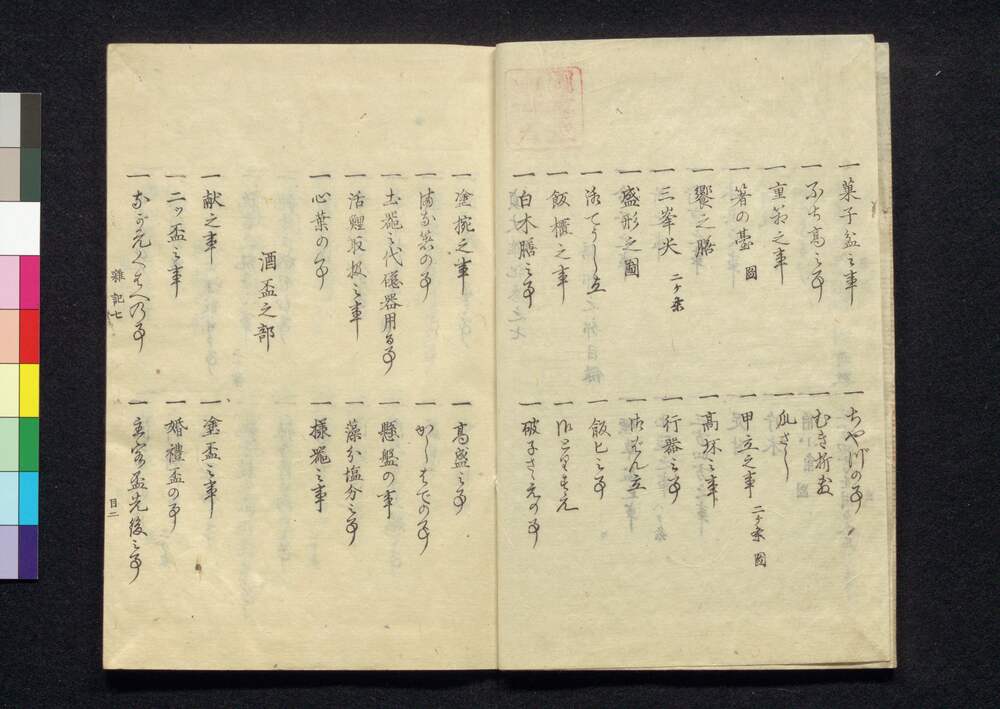 一 菓子盆之事
一 ちやつの事
一 ふち高之事
一 むき折敷
一 重箱之事
一 さし
一 箸の臺 圖
一 甲立之事 二ヶ条 圖
一 饗之膳
一 高杯之事
一 三峯尖 二ヶ条
一 行器之事
一 盛形之圖
一 立
一 てうし立
一 飯匕之事
一 飯櫃之事
一
一 白木膳之事
一 破子さゝえの事
一 塗椀之事
一 高盛之事
一 の事
一 かしはでの事
一 土器之代 器用る事
一 懸盤の事
一 活鯉取扱之事
一 藻分塩分之事
一 心葉の事
一 様器之事
酒盃之部
一 献之事
一 塗盃之事
一 二ツ盃之事
一 婚禮盃の事
一 ながえくはへの事
一 主客盃先後之事
雜記七
目二